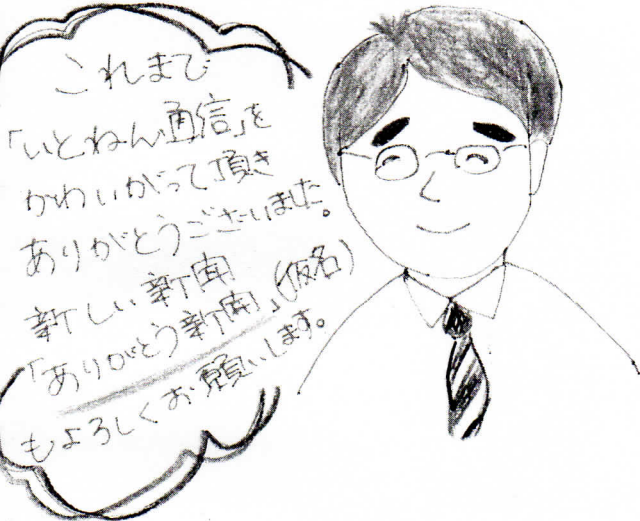 これまで
「いとねん通信」を
かわいがって頂き
ありがとうございました。
新しい新聞
「ありがとう新聞」(仮名)
もよろしくお願いします。